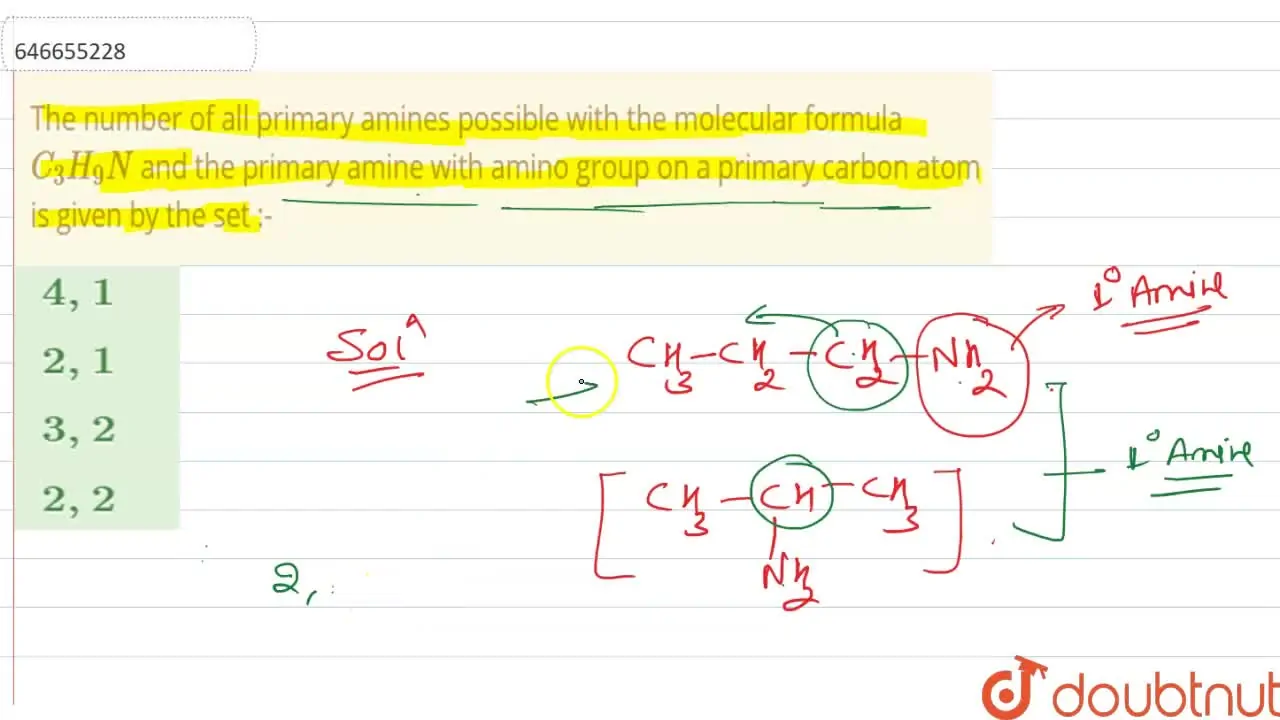 646655228
The number of all primary amines possible with the molecular formula
C₃H₉N and the primary amine with amino group on a primary carbon atom
is given by the set :-
4, 1
2, 1
3, 2
2, 2
Solⁿ
CH₃-CH₂-CH₂-NH₂
1° Amine
CH₃-CH-CH₃
NH₂
1° Amine
2,
doubtnut